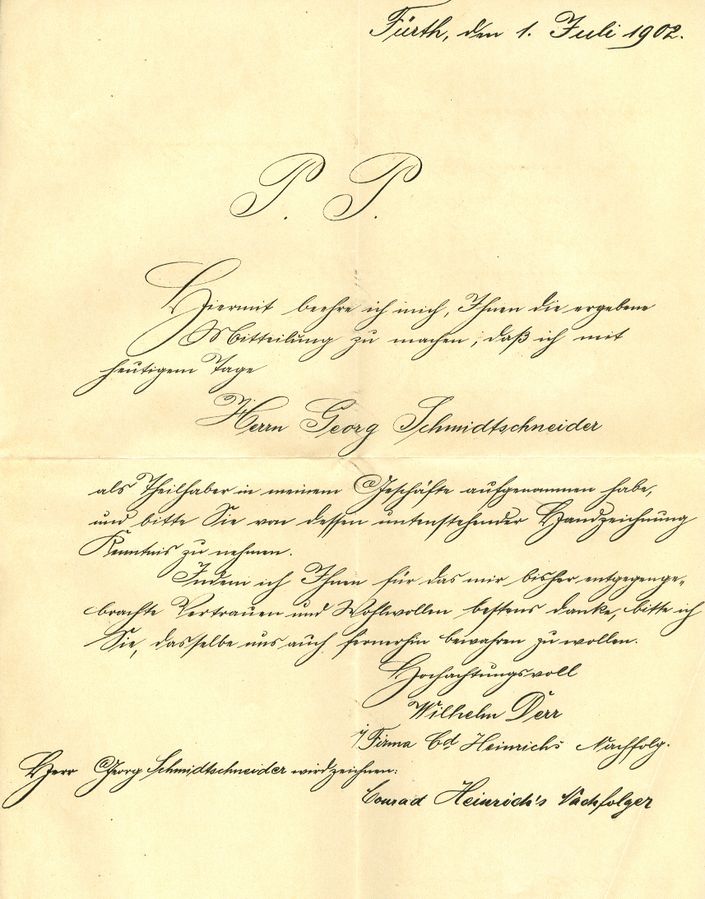 Fürth, den 1. Juli 1902.
P. P.
Hiermit beehre ich mich, Ihnen die ergebene
Mitteilung zu machen; daß ich mit
heutigem Tage
Herrn Georg Schmidtschneider
als Theilhaber in meinem Geschäfte aufgenommen habe,
und bitte Sie von dessen untenstehender Handzeichnung
Kenntnis zu nehmen.
Indem ich Ihnen für das mir bisher entgegenge-
brachte Vertrauen und Wohlwollen bestens danke, bitte ich
Sie, dasselbe uns auch fernerhin bewahren zu wollen.
Hochachtungsvoll
Wilhelm Derr
i/ Firma Cd Heinrich's Nachfolg.
Herr Georg Schmidtschneider wird zeichnen:
Conrad Heinrich's Nachfolger